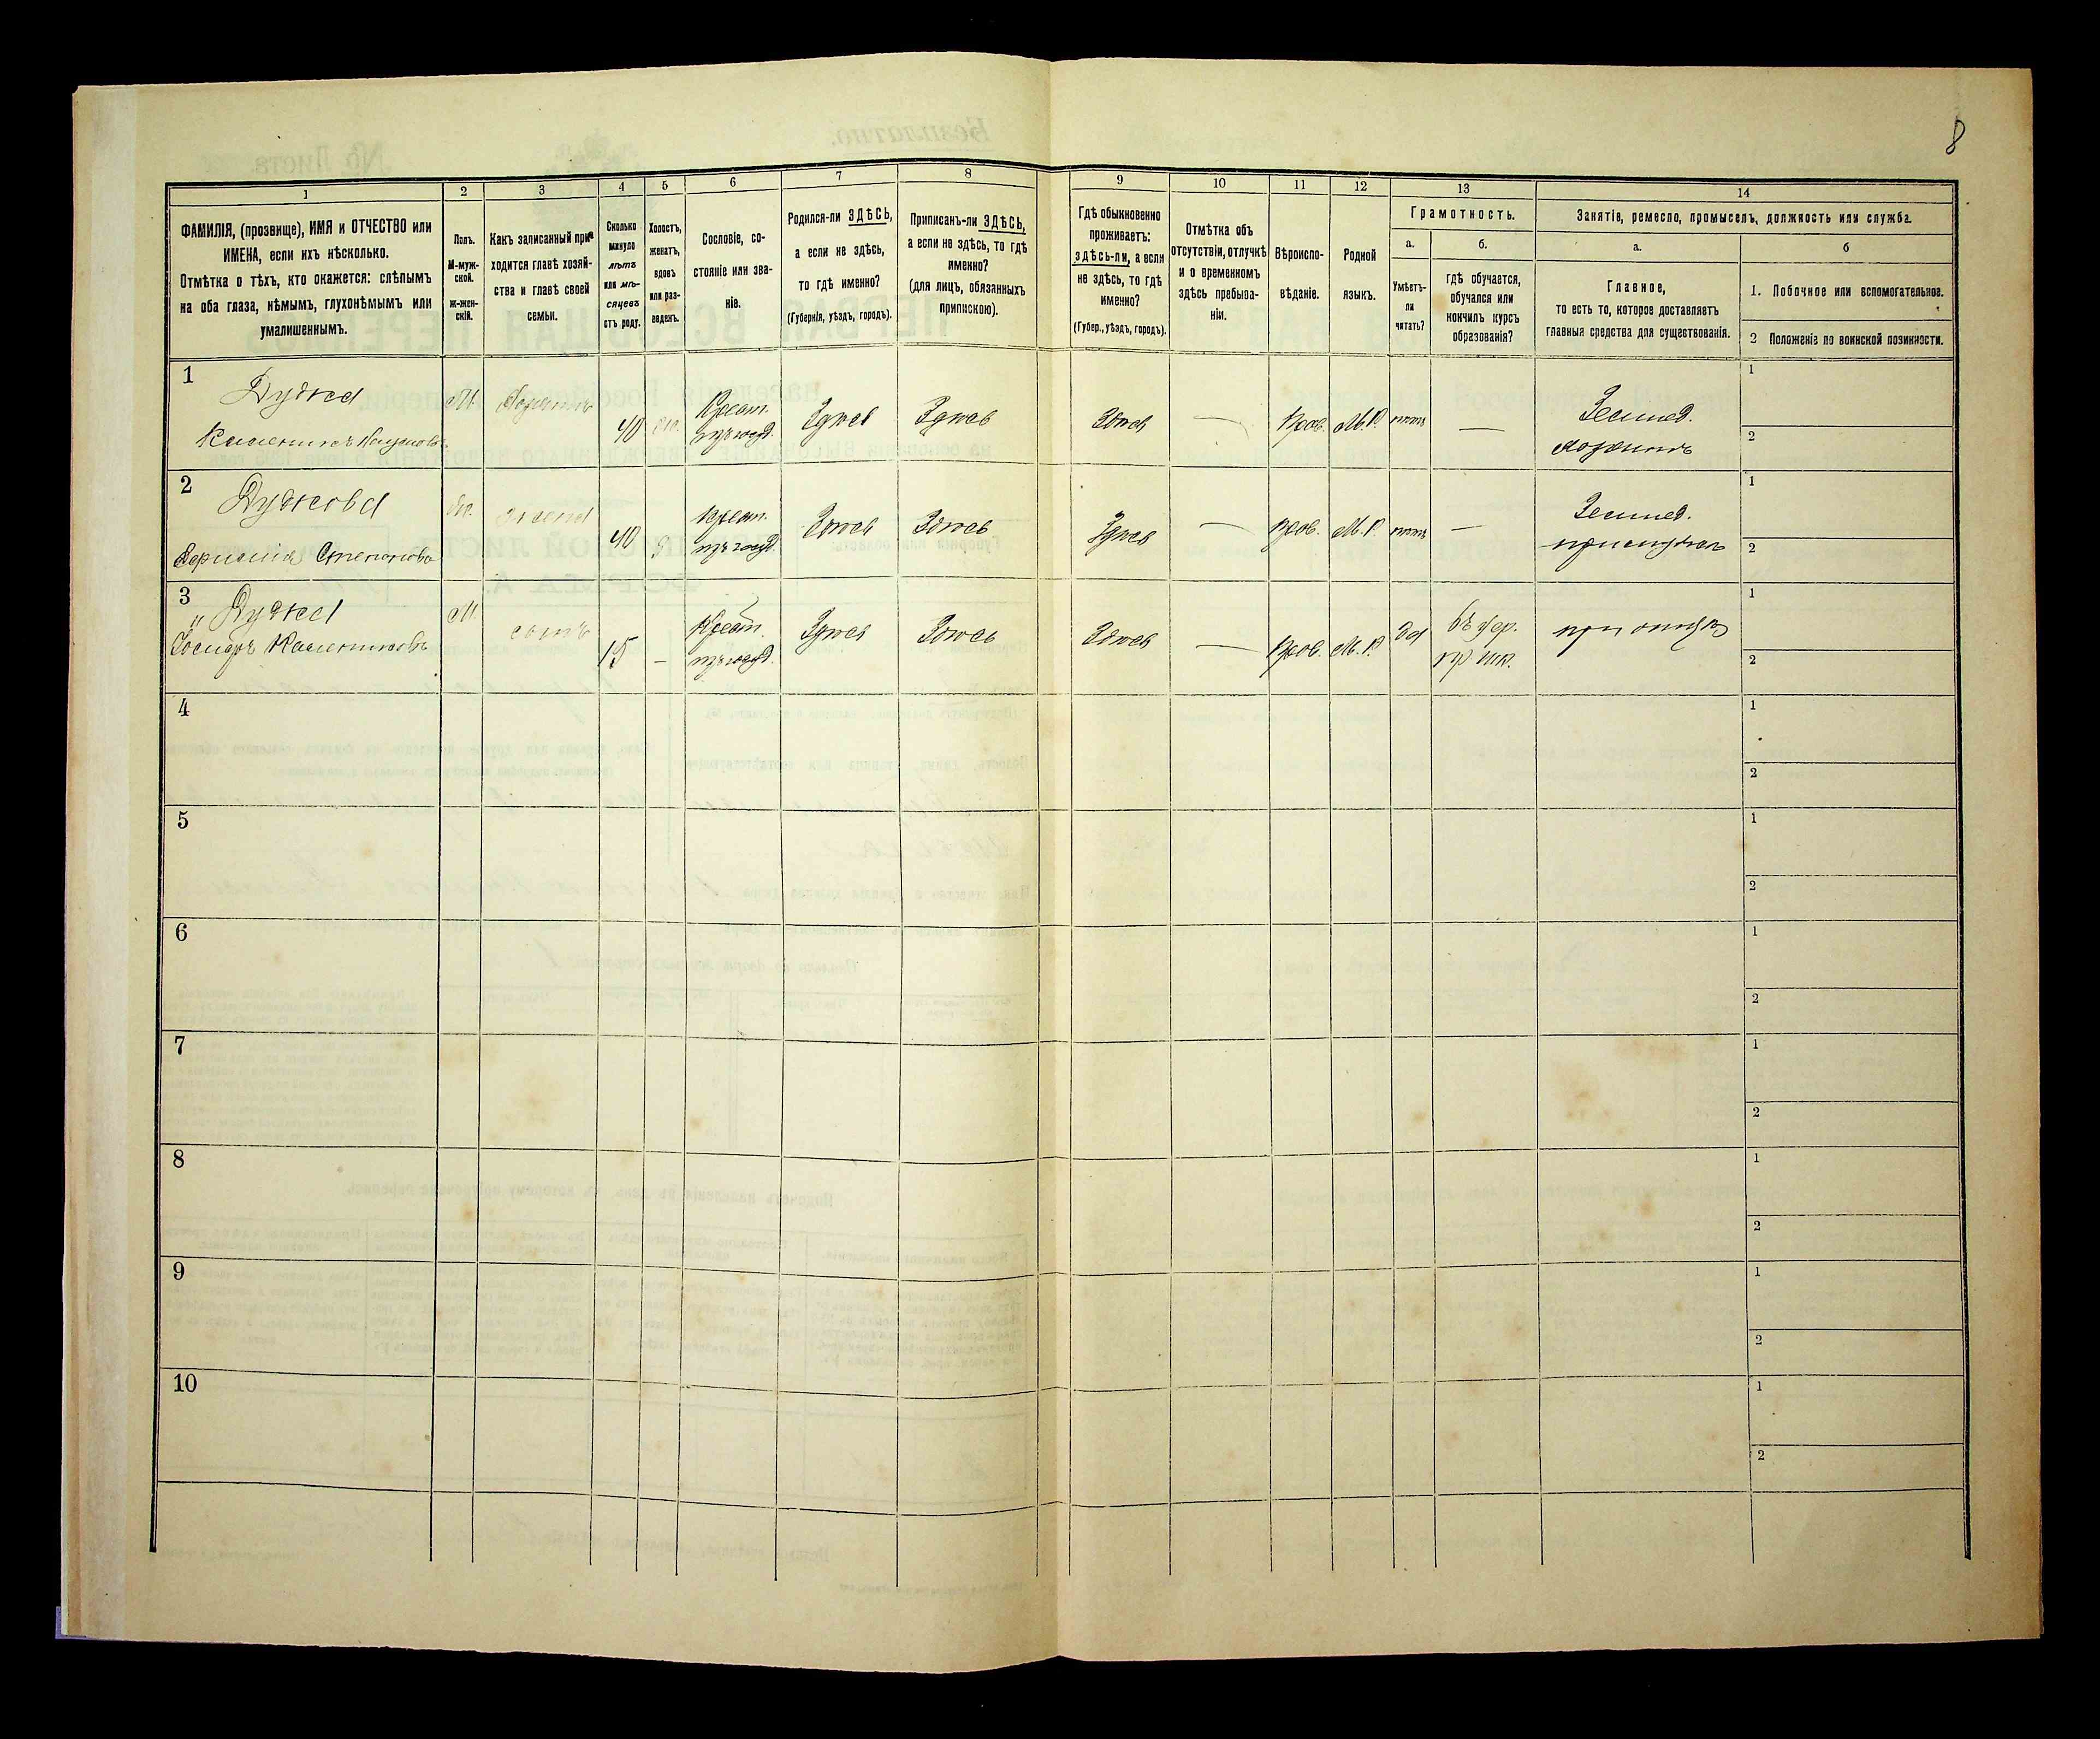 8
1
2
3
4
5
6
7
8
9
10
11
12
13
14
ФАМИЛІЯ, (прозвище), ИМЯ и ОТЧЕСТВО или
ИМЕНА, если ихъ нѣсколько.
Отмѣтка о тѣхъ, кто окажется: слѣпымъ
на оба глаза, нѣмымъ, глухонѣмымъ или
умалишеннымъ.
Полъ.
М-муж-
ской.
ж-жен-
скій.
Какъ записанный при-
ходится главѣ хозяй-
ства и главѣ своей
семьи.
Сколько
минуло
лѣтъ
или мѣ-
сяцевъ
отъ роду.
Холостъ,
женатъ,
вдовъ
или раз-
веденъ.
Сословіе, со-
стояніе или зва-
ніе.
Родился-ли ЗДѢСЬ,
а если не здѣсь,
то гдѣ именно?
(Губернія, уѣздъ, городъ).
Приписанъ-ли ЗДѢСЬ,
а если не здѣсь, то гдѣ
именно?
(для лицъ, обязанныхъ
припискою).
Гдѣ обыкновенно
проживаетъ:
здѣсь-ли, а если
не здѣсь, то гдѣ
именно?
(Губер., уѣздъ, городъ).
Отмѣтка объ
отсутствіи, отлучкѣ
и о временномъ
здѣсь пребыва-
ніи.
Вѣроиспо-
вѣданіе.
Родной
языкъ.
Грамотность.
а.
Умѣетъ-
ли
читать?
б.
гдѣ обучается,
обучался или
кончилъ курсъ
образованія?
Занятія, ремесло, промыселъ, должность или служба.
а.
Главное,
то есть то, которое доставляетъ
главныя средства для существованія.
б
1. Побочное или вспомогательное.
2 Положеніе по воинской повинности.
1
Дудка
М.
40
Крест.
изъ госуд.
Здѣсь
Здѣсь
Здѣсь
—
Прав.
М.Р.
нѣтъ
—
Землед.
хозяинъ
1
2
2
Дудкова
Степанова
жена
40
Крест.
изъ госуд.
Здѣсь
Здѣсь
Здѣсь
—
Прав.
М.Р.
нѣтъ
—
Землед.
1
2
3
" Дудка
Іосифъ Калениковъ
М.
сынъ
15
—
Крест.
изъ госуд.
Здѣсь
Здѣсь
Здѣсь
—
Прав.
М.Р.
да
при отцѣ
1
2
4
1
2
5
1
2
6
1
2
7
1
2
8
1
2
9
1
2
10
1
2